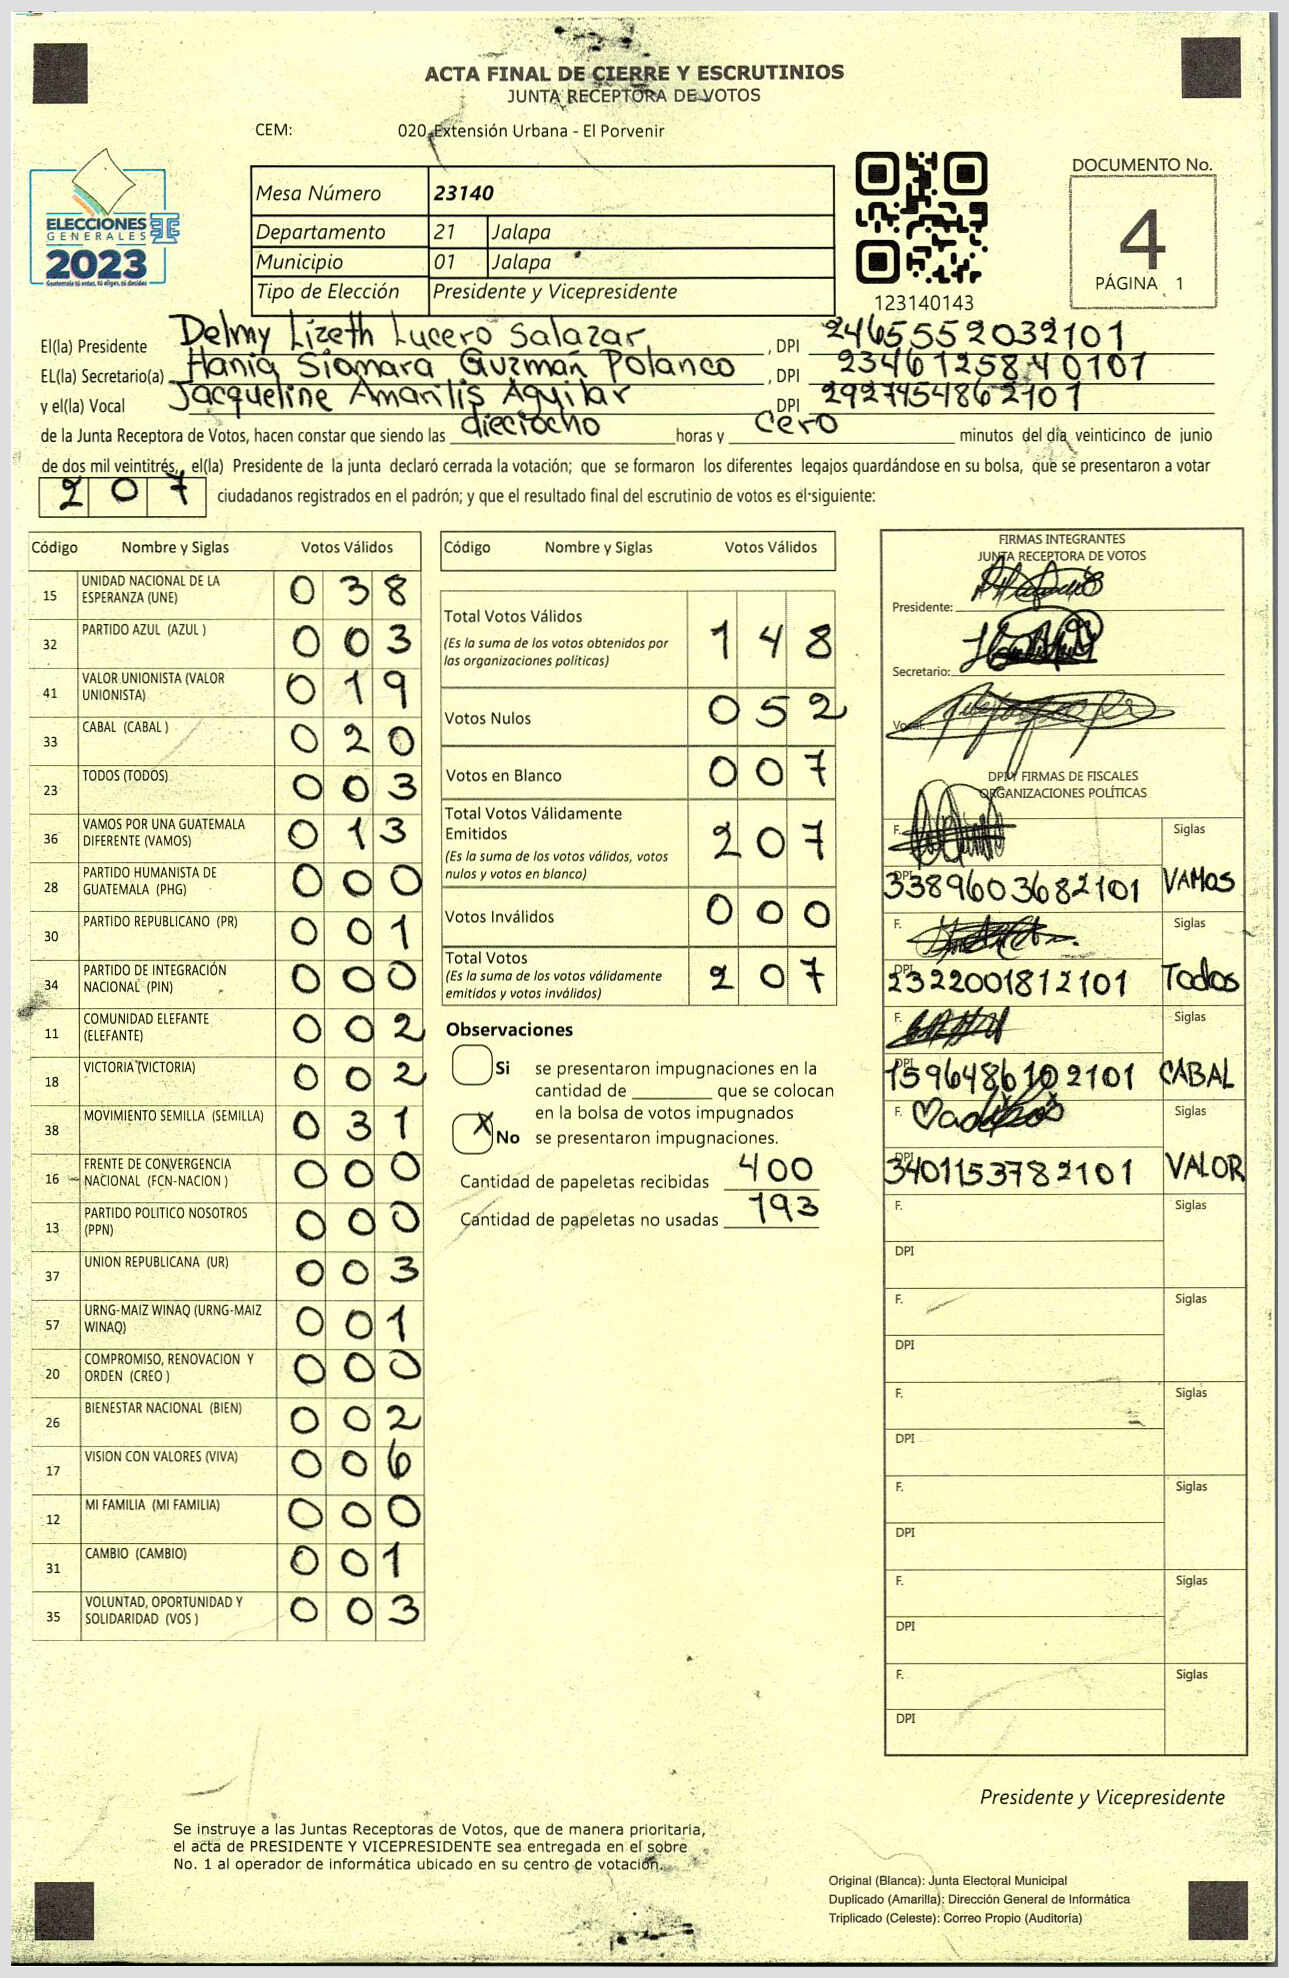 ACTA FINAL DE CIERRE Y ESCRUTINIOS
JUNTA RECEPTORA DE VOTOS
CEM: 020 Extensión Urbana - El Porvenir
ELECCIONES
GENERALES
2023
Guatemala tú votas, tú eliges, tú decides
Mesa Número 23140
Departamento 21 Jalapa
Municipio 01 Jalapa
Tipo de Elección Presidente y Vicepresidente
123140143
DOCUMENTO No.
4
PÁGINA 1
El(la) Presidente Delmy Lizeth Lucero Salazar, DPI 2465552032101
EL(la) Secretario(a) Hania Siomara Guzmán Polanco, DPI 2346125840101
y el(la) Vocal Jacqueline Amarilis Aguilar DPI 2927454862101
de la Junta Receptora de Votos, hacen constar que siendo las dieciocho horas y cero minutos del día veinticinco de junio
de dos mil veintitrés, el(la) Presidente de la junta declaró cerrada la votación; que se formaron los diferentes legajos guardándose en su bolsa, que se presentaron a votar
207 ciudadanos registrados en el padrón; y que el resultado final del escrutinio de votos es el siguiente:
Código Nombre y Siglas Votos Válidos
15 UNIDAD NACIONAL DE LA ESPERANZA (UNE) 038
32 PARTIDO AZUL (AZUL ) 003
41 VALOR UNIONISTA (VALOR UNIONISTA) 019
33 CABAL (CABAL ) 020
23 TODOS (TODOS) 003
36 VAMOS POR UNA GUATEMALA DIFERENTE (VAMOS) 013
28 PARTIDO HUMANISTA DE GUATEMALA (PHG) 000
30 PARTIDO REPUBLICANO (PR) 001
34 PARTIDO DE INTEGRACIÓN NACIONAL (PIN) 000
11 COMUNIDAD ELEFANTE (ELEFANTE) 002
18 VICTORIA (VICTORIA) 002
38 MOVIMIENTO SEMILLA (SEMILLA) 031
16 FRENTE DE CONVERGENCIA NACIONAL (FCN-NACION ) 000
13 PARTIDO POLITICO NOSOTROS (PPN) 000
37 UNION REPUBLICANA (UR) 003
57 URNG-MAIZ WINAQ (URNG-MAIZ WINAQ) 001
20 COMPROMISO, RENOVACION Y ORDEN (CREO ) 000
26 BIENESTAR NACIONAL (BIEN) 002
17 VISION CON VALORES (VIVA) 006
12 MI FAMILIA (MI FAMILIA) 000
31 CAMBIO (CAMBIO) 001
35 VOLUNTAD, OPORTUNIDAD Y SOLIDARIDAD (VOS ) 003
Código Nombre y Siglas Votos Válidos
Total Votos Válidos 148
(Es la suma de los votos obtenidos por
las organizaciones políticas)
Votos Nulos 052
Votos en Blanco 007
Total Votos Válidamente
Emitidos 207
(Es la suma de los votos válidos, votos
nulos y votos en blanco)
Votos Inválidos 000
Total Votos 207
(Es la suma de los votos válidamente
emitidos y votos inválidos)
Observaciones
Si se presentaron impugnaciones en la
cantidad de ________ que se colocan
en la bolsa de votos impugnados
X No se presentaron impugnaciones.
Cantidad de papeletas recibidas 400
Cantidad de papeletas no usadas 193
FIRMAS INTEGRANTES
JUNTA RECEPTORA DE VOTOS
Presidente:
Secretario:
Vocal:
DPI Y FIRMAS DE FISCALES
ORGANIZACIONES POLÍTICAS
F. Siglas
DPI 3389603682101 VAMOS
F. Siglas
DPI 2322001812101 Todos
F. Siglas
DPI 1596486102101 CABAL
F. Siglas
DPI 3401153782101 VALOR
F. Siglas
DPI
F. Siglas
DPI
F. Siglas
DPI
F. Siglas
DPI
F. Siglas
DPI
F. Siglas
DPI
Presidente y Vicepresidente
Se instruye a las Juntas Receptoras de Votos, que de manera prioritaria,
el acta de PRESIDENTE Y VICEPRESIDENTE sea entregada en el sobre
No. 1 al operador de informática ubicado en su centro de votación.
Original (Blanca): Junta Electoral Municipal
Duplicado (Amarilla): Dirección General de Informática
Triplicado (Celeste): Correo Propio (Auditoría)